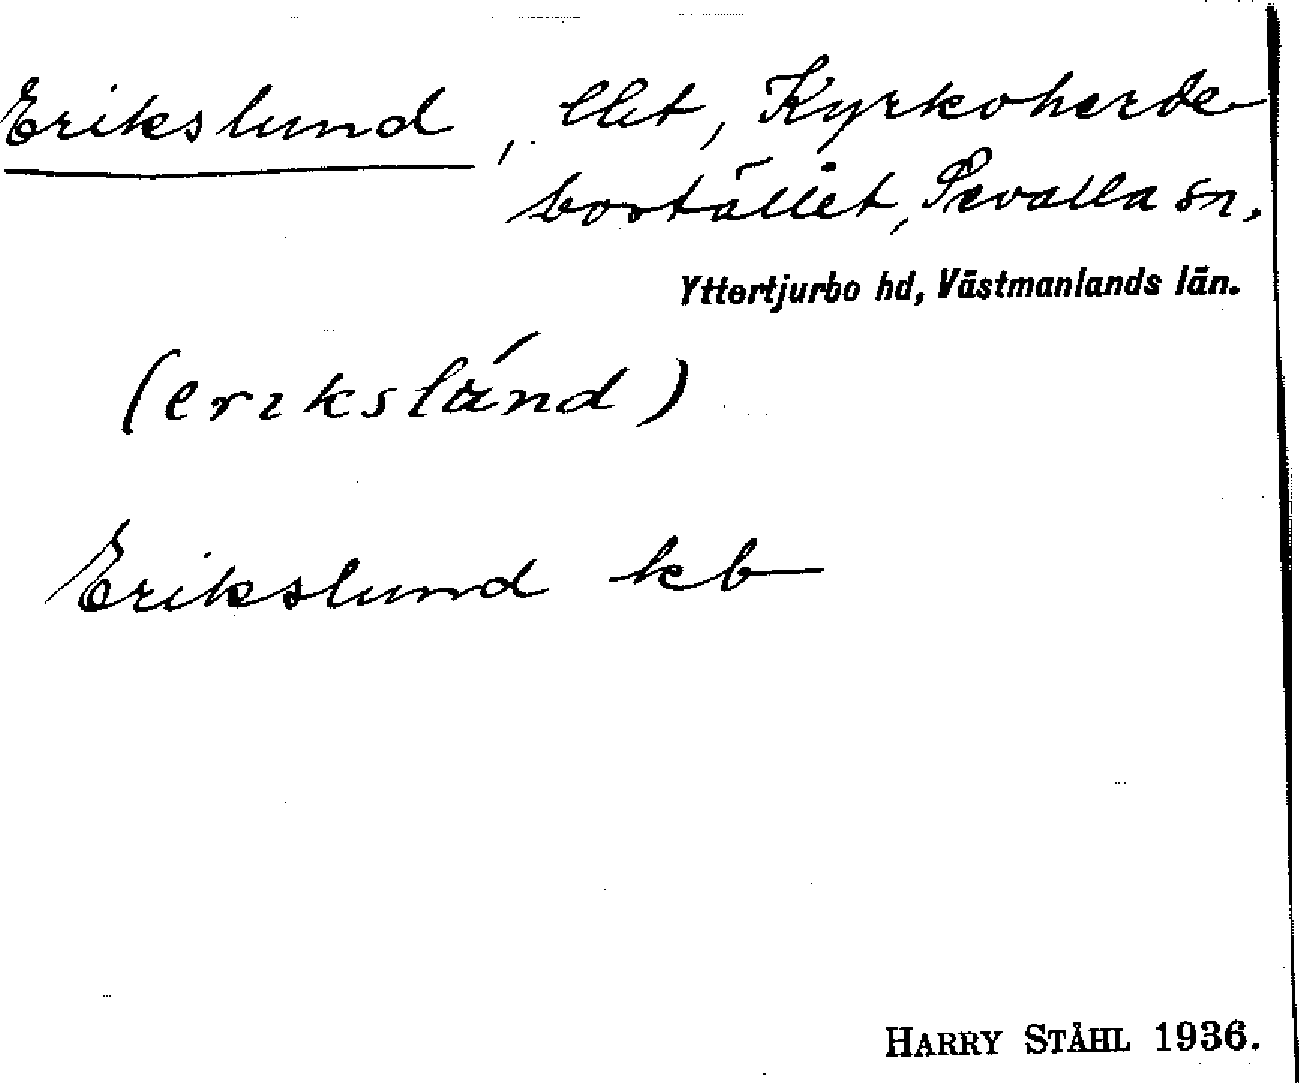 Erikslund, llet, Kyrkoherde-
bostället, Sevalla sn.
Yttertjurbo hd, Västmanlands län.
(eriksländ)
Erikslund kb
HARRY STÅHL 1936.